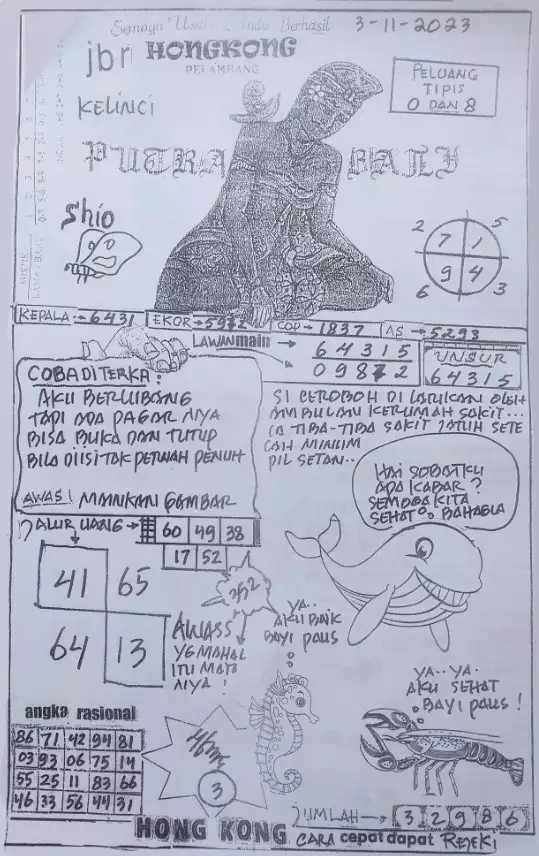 Semoga Usaha Anda Berhasil
3-11-2023
jbr HONGKONG
PELAMBANG
PELUANG
TIPIS
0 DAN 8
KELINCI
PUTRA BALI
Shio
2 5
7 1
9 4
6 3
KEPALA → 6431 EKOR → 5972 COP → 1837 AS → 5293
LAWAN main → 6 4 3 1 5
0 9 8 7 2
UNSUR
6 4 3 1 5
COBA DITERKA:
AKU BERLUBANG
TAPI ADA PAGAR NYA
BISA BUKA DAN TUTUP
BILA DIISI TAK PERNAH PENUH
AWAS! MAINKAN GAMBAR
SI CEROBOH DI LARIKAN OLEH
AMBULAN KERUMAH SAKIT...
IA TIBA-TIBA SAKIT JATUH SETE
LAH MINUM
PIL SETAN..
HAI SOBATKU
APA KABAR?
SEMOGA KITA
SEHAT BAHAGIA
ALUR UANG → 60 49 38
17 52
41 65
64 13
AWASS
YG MAHAL
ITU MATA
NIYA!
YA..
AKU BAIK
BAYI PAUS
YA..YA.
AKU SEHAT
BAYI PAUS!
angka rasional
86 71 42 94 81
03 93 06 75 14
55 25 11 83 66
46 33 56 44 31
3
JUMLAH → 3 2 9 8 6
HONG KONG CARA cepat dapat REJEKI